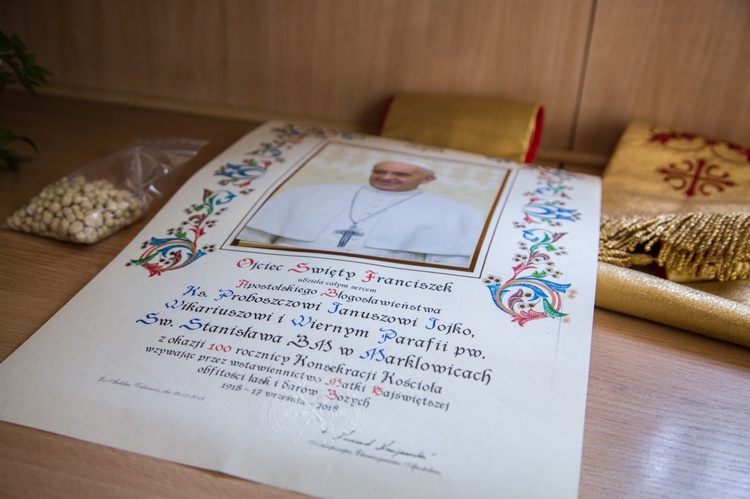 Ojciec Święty Franciszek
udziela całym sercem
Apostolskiego Błogosławieństwa
Ks. Proboszczowi Januszowi Jojko,
Wikariuszowi i Wiernym Parafii pw.
Św. Stanisława BM w Marklowicach
z okazji 100 rocznicy Konsekracji Kościoła
wzywając przez wstawiennictwo Matki Najświętszej
obfitości łask i darów Bożych
1918 - 17 września - 2018